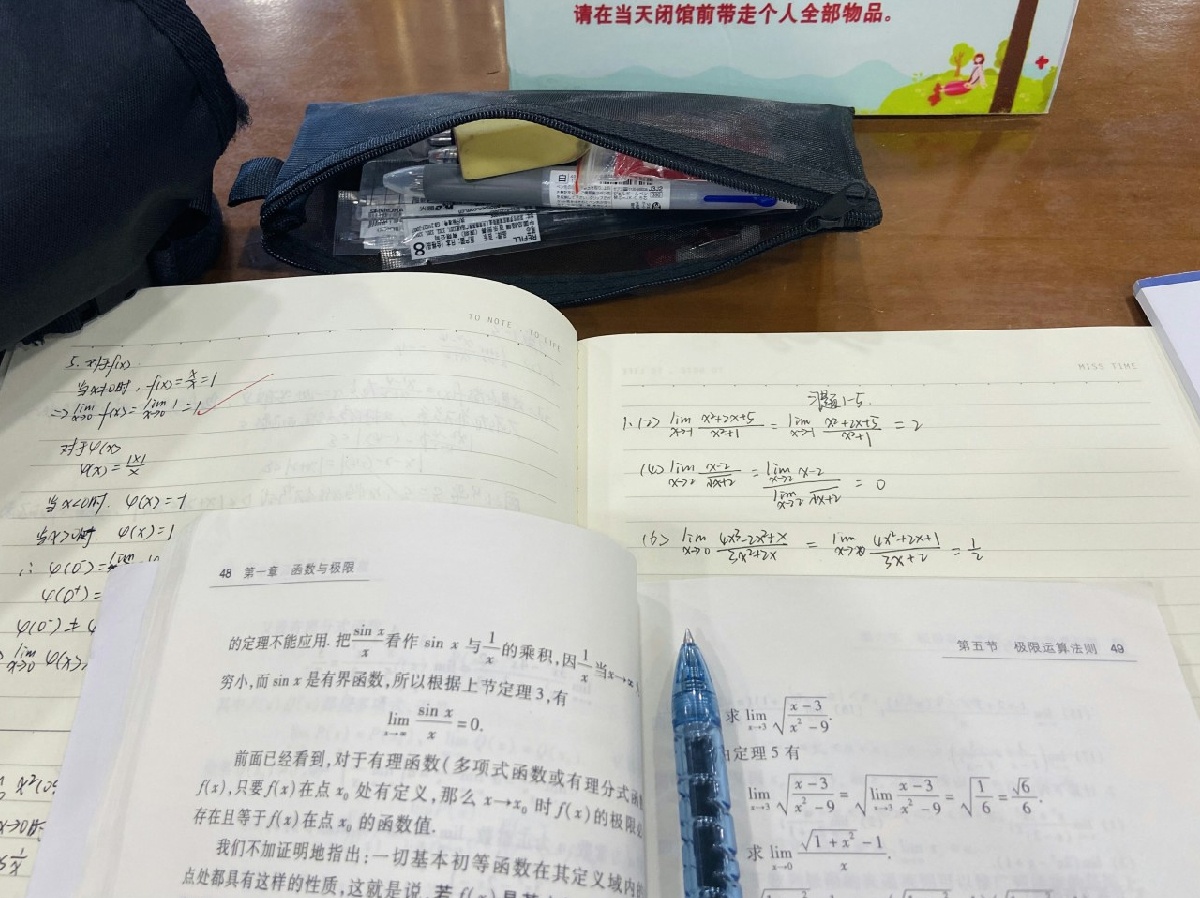 请在当天闭馆前带走个人全部物品。
REFILL
TO NOTE · TO LIFE
5. 对于f(x)
当x≠0时, f(x)=x/x=1
=> lim x→0 f(x)=lim x→0 1=1
对于φ(x)
φ(x)=|x|/x
当x<0时, φ(x)=-1
当x>0时 φ(x)=1
∴ φ(0⁻)=lim
φ(0⁺)=
φ(0⁻)≠
lim x→0 φ(x)
MISS TIME
习题1-5.
1. (2) lim x→1 (x²+2x+5)/(x²+1) = lim x→1 (x²+2x+5)/(x²+1) = 2
(4) lim x→2 (x-2)/√(x+2) = (lim x→2 x-2)/(lim x→2 √(x+2)) = 0
lim x→0 (4x³-2x²+x)/(3x²+2x) = lim x→0 (4x²-2x+1)/(3x+2) = 1/2
48 第一章 函数与极限
的定理不能应用. 把 sin x/x 看作 sin x 与 1/x 的乘积,因 1/x 当 x→∞
穷小,而 sin x 是有界函数,所以根据上节定理3,有
lim x→∞ sin x/x = 0.
前面已经看到,对于有理函数(多项式函数或有理分式函
f(x),只要 f(x) 在点 x₀ 处有定义,那么 x→x₀ 时 f(x) 的极限
存在且等于 f(x) 在点 x₀ 的函数值.
我们不加证明地指出:一切基本初等函数在其定义域内
点处都具有这样的性质,这就是说,若 f(x) 是
第五节 极限运算法则 49
求 lim x→3 √((x-3)/(x²-9)).
定理5有
lim x→3 √((x-3)/(x²-9)) = √(lim x→3 (x-3)/(x²-9)) = √(1/6) = √6/6.
求 lim x→0 (√(1+x²)-1)/x.